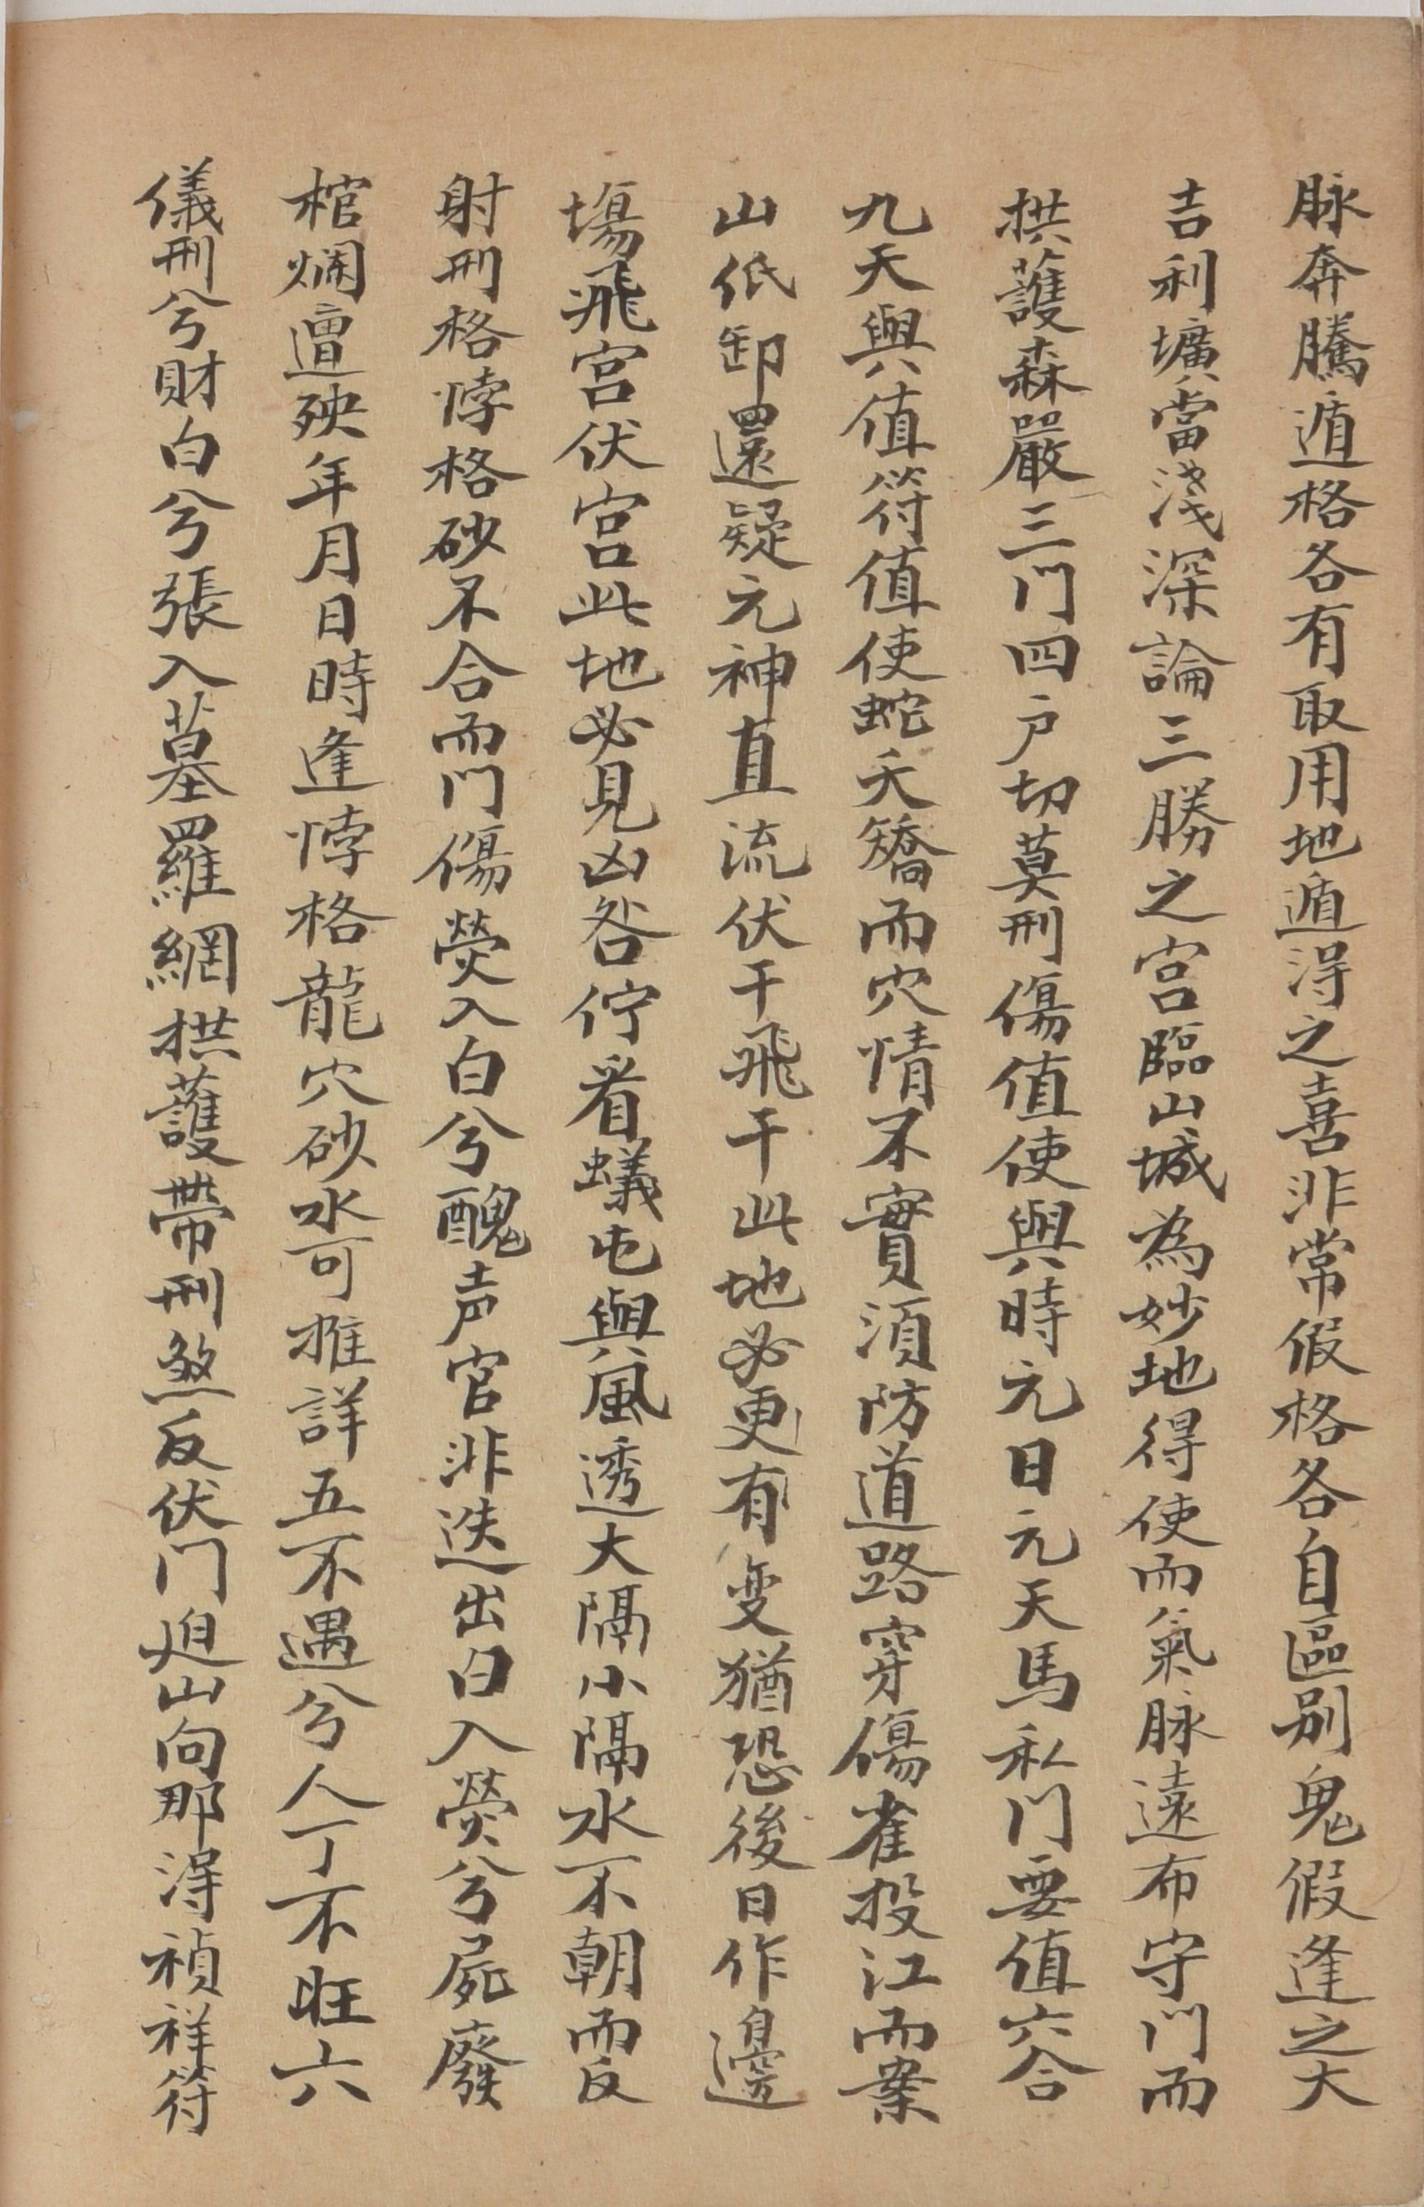 脉奔騰遁格各有取用地遁淂之喜非常假格各自區别鬼假逢之大
吉利壙當淺深論三勝之宫臨山城為妙地得使而氣脉遠布守门而
拱護森嚴三门四户切莫刑傷值使與時元日元天馬私门要值六合
九天與值符值使蛇夭矯而穴情不實須防道路穿傷雀投江而案
山低卸還疑元神直流伏干飛干此地必更有变猶恐後日作邊
塲飛宫伏宫此地必見凶咎佇看蟻屯與風透大隔小隔水不朝而反
射刑格悖格砂不合而门傷熒入白兮醜声官非迭出白入熒兮屍廢
棺爛遭殃年月日時逢悖格龍穴砂水可推詳五不遇兮人丁不旺六
儀刑兮財白兮張入墓羅網拱護帶刑煞反伏门廹山向那淂禎祥符